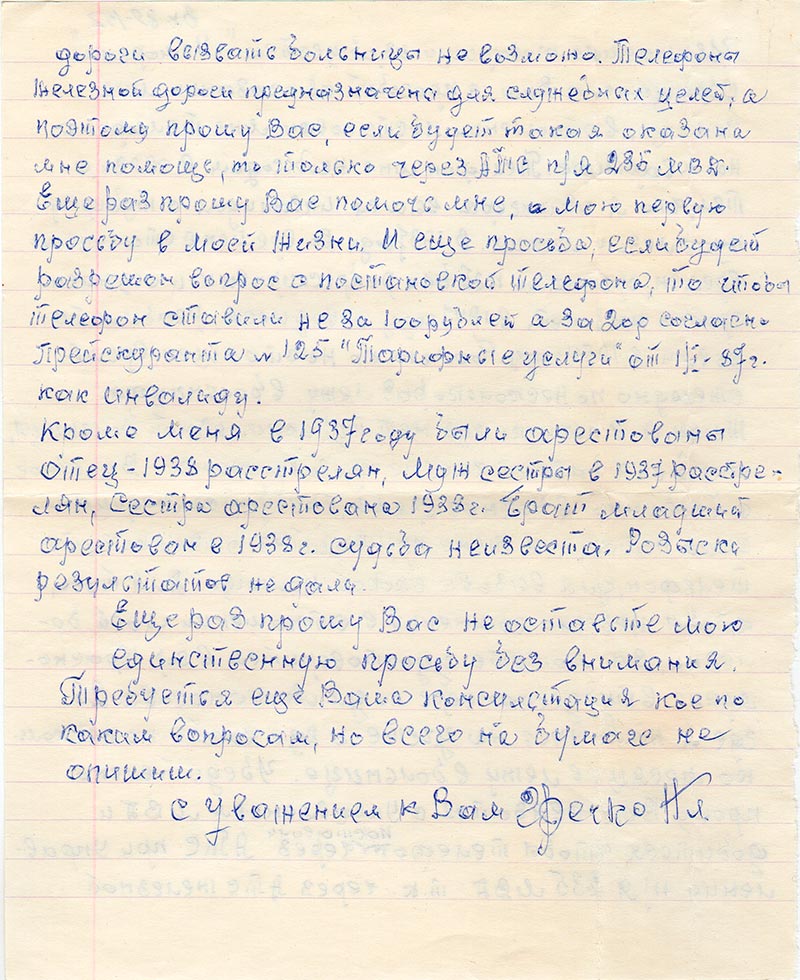 дороги вызвать больницы не возможо. Телефоны
железной дороги предназначена для служебных целей, а
поэтому прошу Вас, если будет такая оказана
мне помощь, то только через АТС п/я 235 МВД.
Еще раз прошу Вас помочь мне, а мою первую
просьбу в моей жизни. И еще просьба, если будет
разрешон вопрос с постановкой телефона, то чтобы
телефон ставили не за 100 рублей а за 20р согласно
прейскуранта № 125 "Тарифные услуги" от 1/I-87г.
как инвалиду.
Кроме меня в 1937 году были арестованы
отец - 1938 расстрелян, муж сестры в 1937 расстре-
лян, сестра арестована 1938г. брат младший
арестован в 1938г. судьба неизвеста. Розыски
результатов не дали.
Еще раз прошу Вас не оставьте мою
единственную просьбу без внимания.
Требуется еще Ваша консультация кое по
каким вопросам, но всего на бумаге не
опишиш.
с уважением к Вам